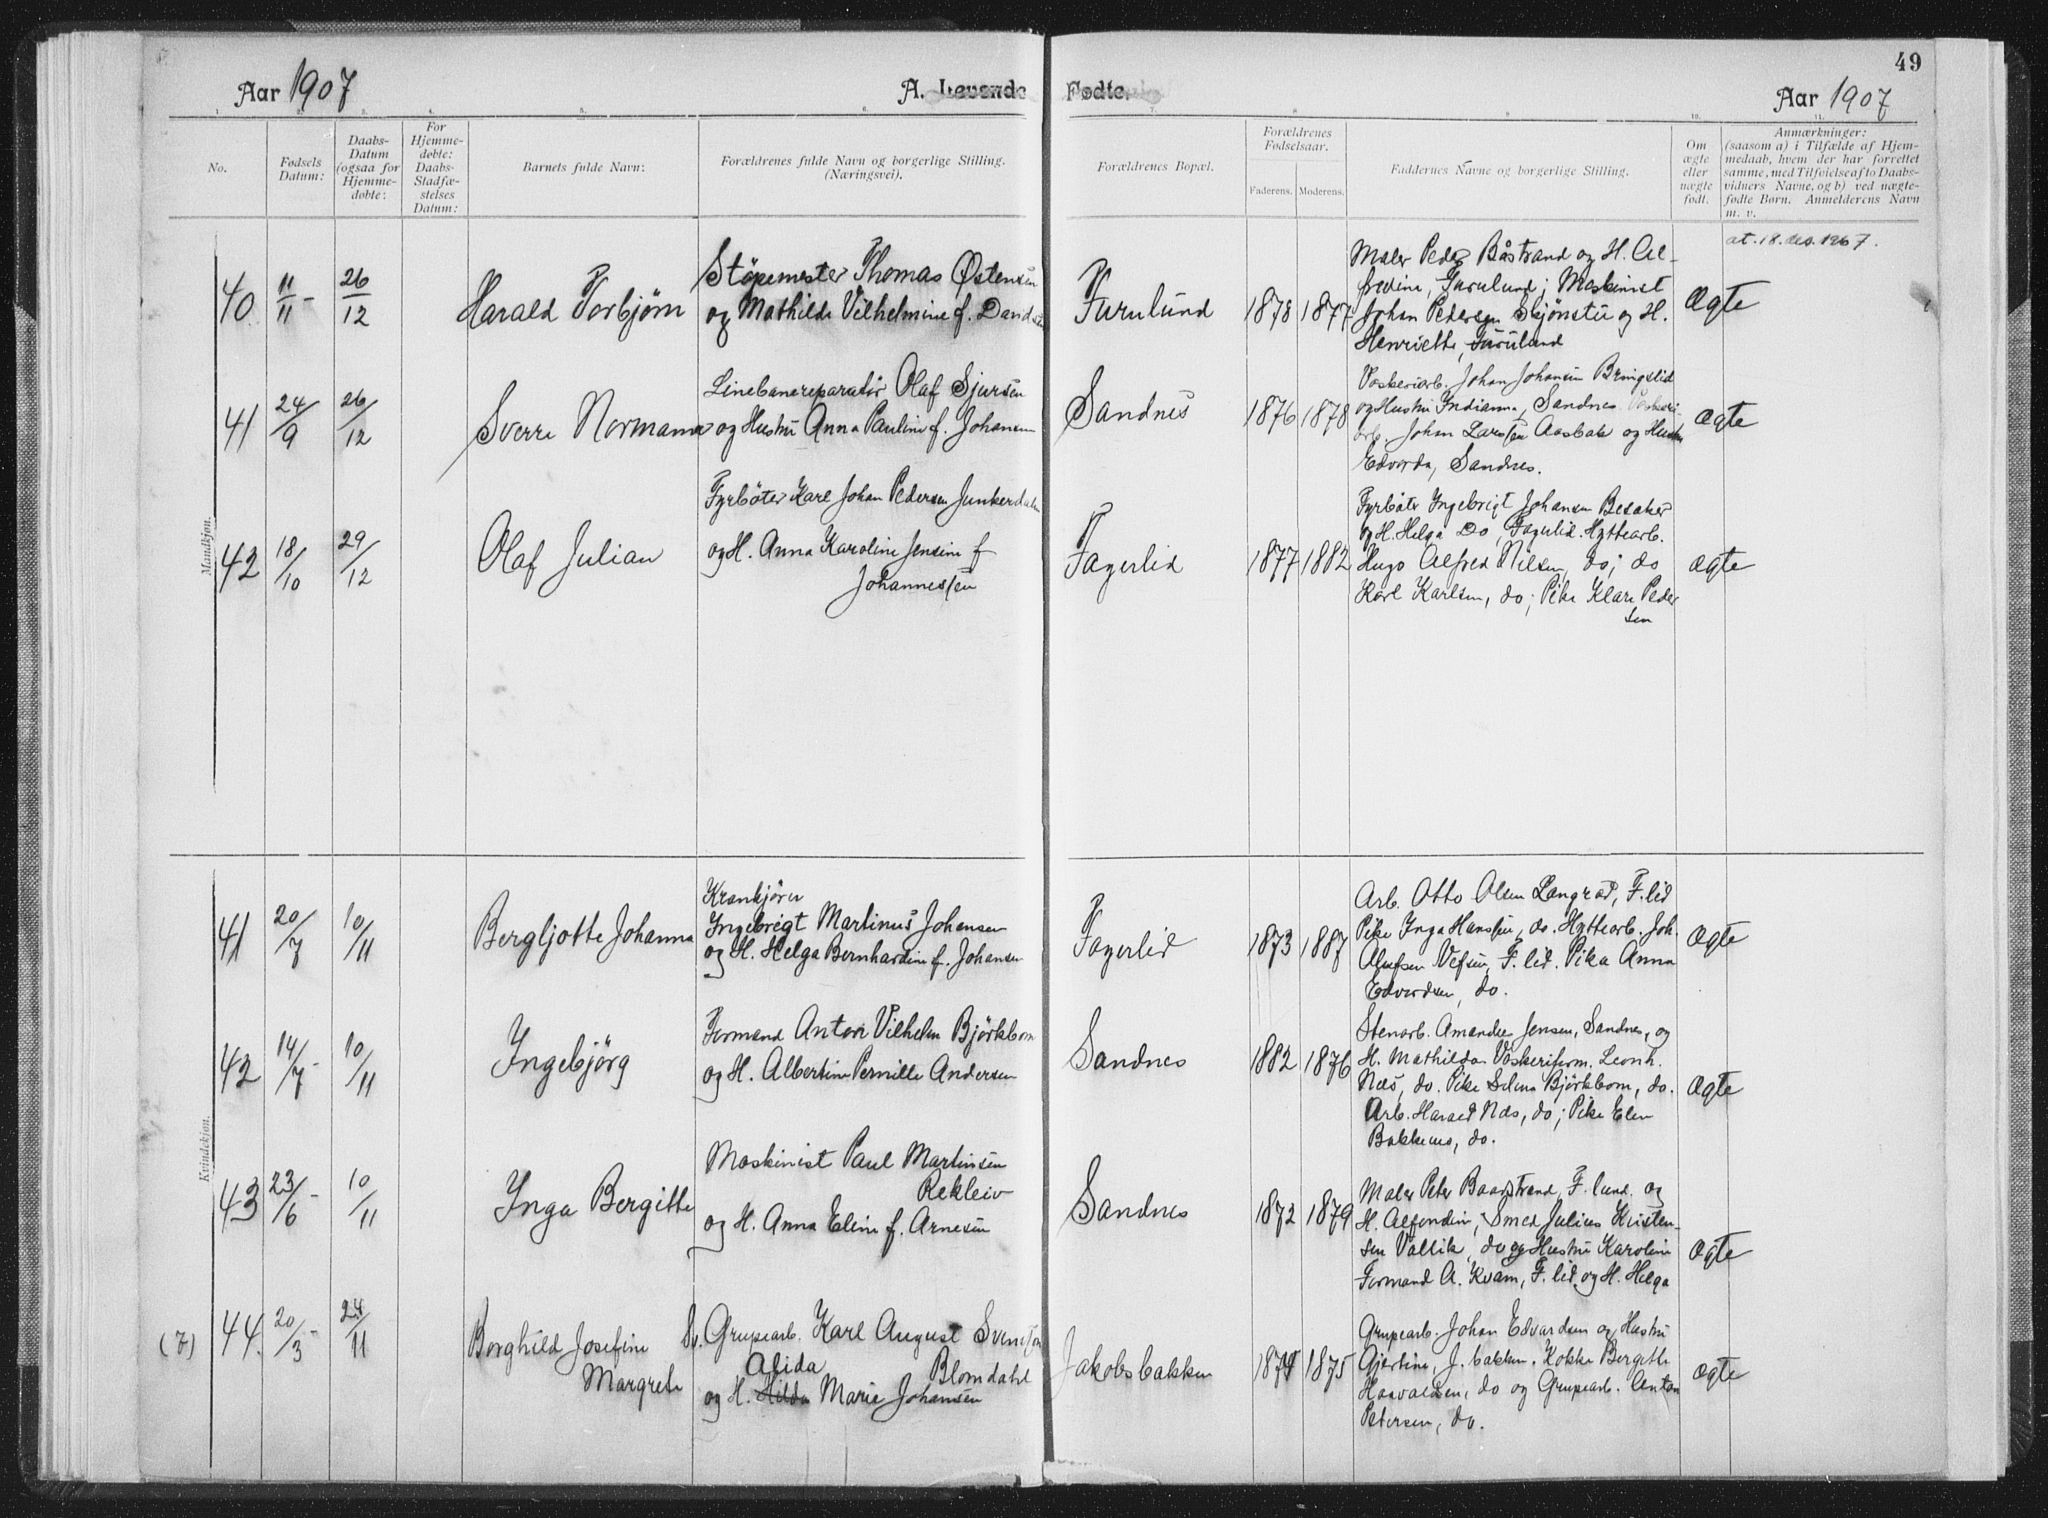 49
Aar 1907
A. Levende Fødte.
Aar 1907
1. 2. 3. 4. 5. 6. 7. 8. 9. 10. 11.
No.
Fødsels Datum:
Daabs-Datum (ogsaa for Hjemme-døbte:
For Hjemme-døbte: Daabs-Stadfæ-stelses Datum:
Barnets fulde Navn:
Forældrenes fulde Navn og borgerlige Stilling. (Næringsvei).
Forældrenes Bopæl.
Forældrenes Fødselsaar.
Faderens. Moderens.
Faddernes Navne og borgerlige Stilling.
Om ægte eller uægte født.
Anmærkninger:
(saasom a) i Tilfælde af Hjem-
medaab, hvem der har forrettet
samme, med Tilføielse af to Daabs-
vidners Navne, og b) ved uægte-
fødte Børn. Anmelderens Navn
m. v.
Mandkjøn.
40 11/11 - 26/12
Harald Torbjørn
Støpemester Thomas Østensen
og Mathilde Vilhelmine f. Davidsen
Furulund
1878 1877
Maler Peder Båstrand og H. Al-
fredine, Furulund; Maskinist
Johan Pedersen Skjønstu og H.
Henriette, Furulund
Ægte
at. 18. des. 1967.
41 24/9 26/12
Sverre Normann
Linebanereparatør Olaf Sjursen
og Hustru Anna Pauline f. Johansen
Sandnes
1876 1878
Vaskeriarb. Johan Johansen Bringslid
og Hustru Indianna, Sandnes. Vaskeri-
arb. Johan Larssen Aasbak og Hustru
Edvarda, Sandnes.
Ægte
42 18/10 29/12
Olaf Julian
Fyrbøter Karl Johan Pedersen Junkerdalen
og H. Anna Karoline Jensine f
Johannessen
Fagerlid
1877 1882
Fyrbøter Ingebrigt Johansen Besaker
og H. Helga Do, Fagerlid. Hyttearb.
Hugo Alfred Nilsen, do; do
Karl Karlsen, do; Pike Klara Peder
sen
Ægte
Kvindekjøn.
41 20/7 10/11
Bergljotte Johanna
Krankjører
Ingebrigt Martinus Johansen
og H. Helga Bernhardine f. Johansen
Fagerlid
1873 1887
Arb. Otto Olsen Langrød, F.lid
Pike Inga Hanssen, do. Hyttearb. Joh.
Olufsen Vefsen, F.lid. Pika Anna
Edvardsen, do.
Ægte
42 14/7 - 10/11
Ingebjörg
Formand Anton Vilhelm Björkbom
og H. Albertine Pernille Andersen
Sandnes
1882 1876
Stenarb. Amandus Jensen, Sandnes, og
H. Mathilda. Vaskeriform. Leonh.
Næs, do. Pike Selma Björkbom, do.
Arb. Harald Næs, do; Pike Elen
Bakkemo, do.
Ægte
43 23/6 - 10/11
Inga Bergitte
Maskinist Paul Martinsen
Rekleiv
og H. Anna Eline f. Arnesen
Sandnes
1872 1879
Maler Peter Baarstrand, F.lund. og
H. Alfondine, Smed Julius Kristen-
sen Vallik, do og Hustru Karoline
Formand A. Kvam, F.lid og H. Helga
Ægte
(7) 44. 20/3 - 24/11
Borghild Josefine
Margrete
Sv. Grupearb. Karl August Svensson
Alida Blomdahl
og H. Hilda Marie Johansen
Jakobsbakken
1874 1875
Grupearb. Johan Edvardsen og Hustru
Gjertine, J.bakken. Kokke Bergette
Haavaldsen, do og Grupearb. Anton
Petersen, do.
Ægte